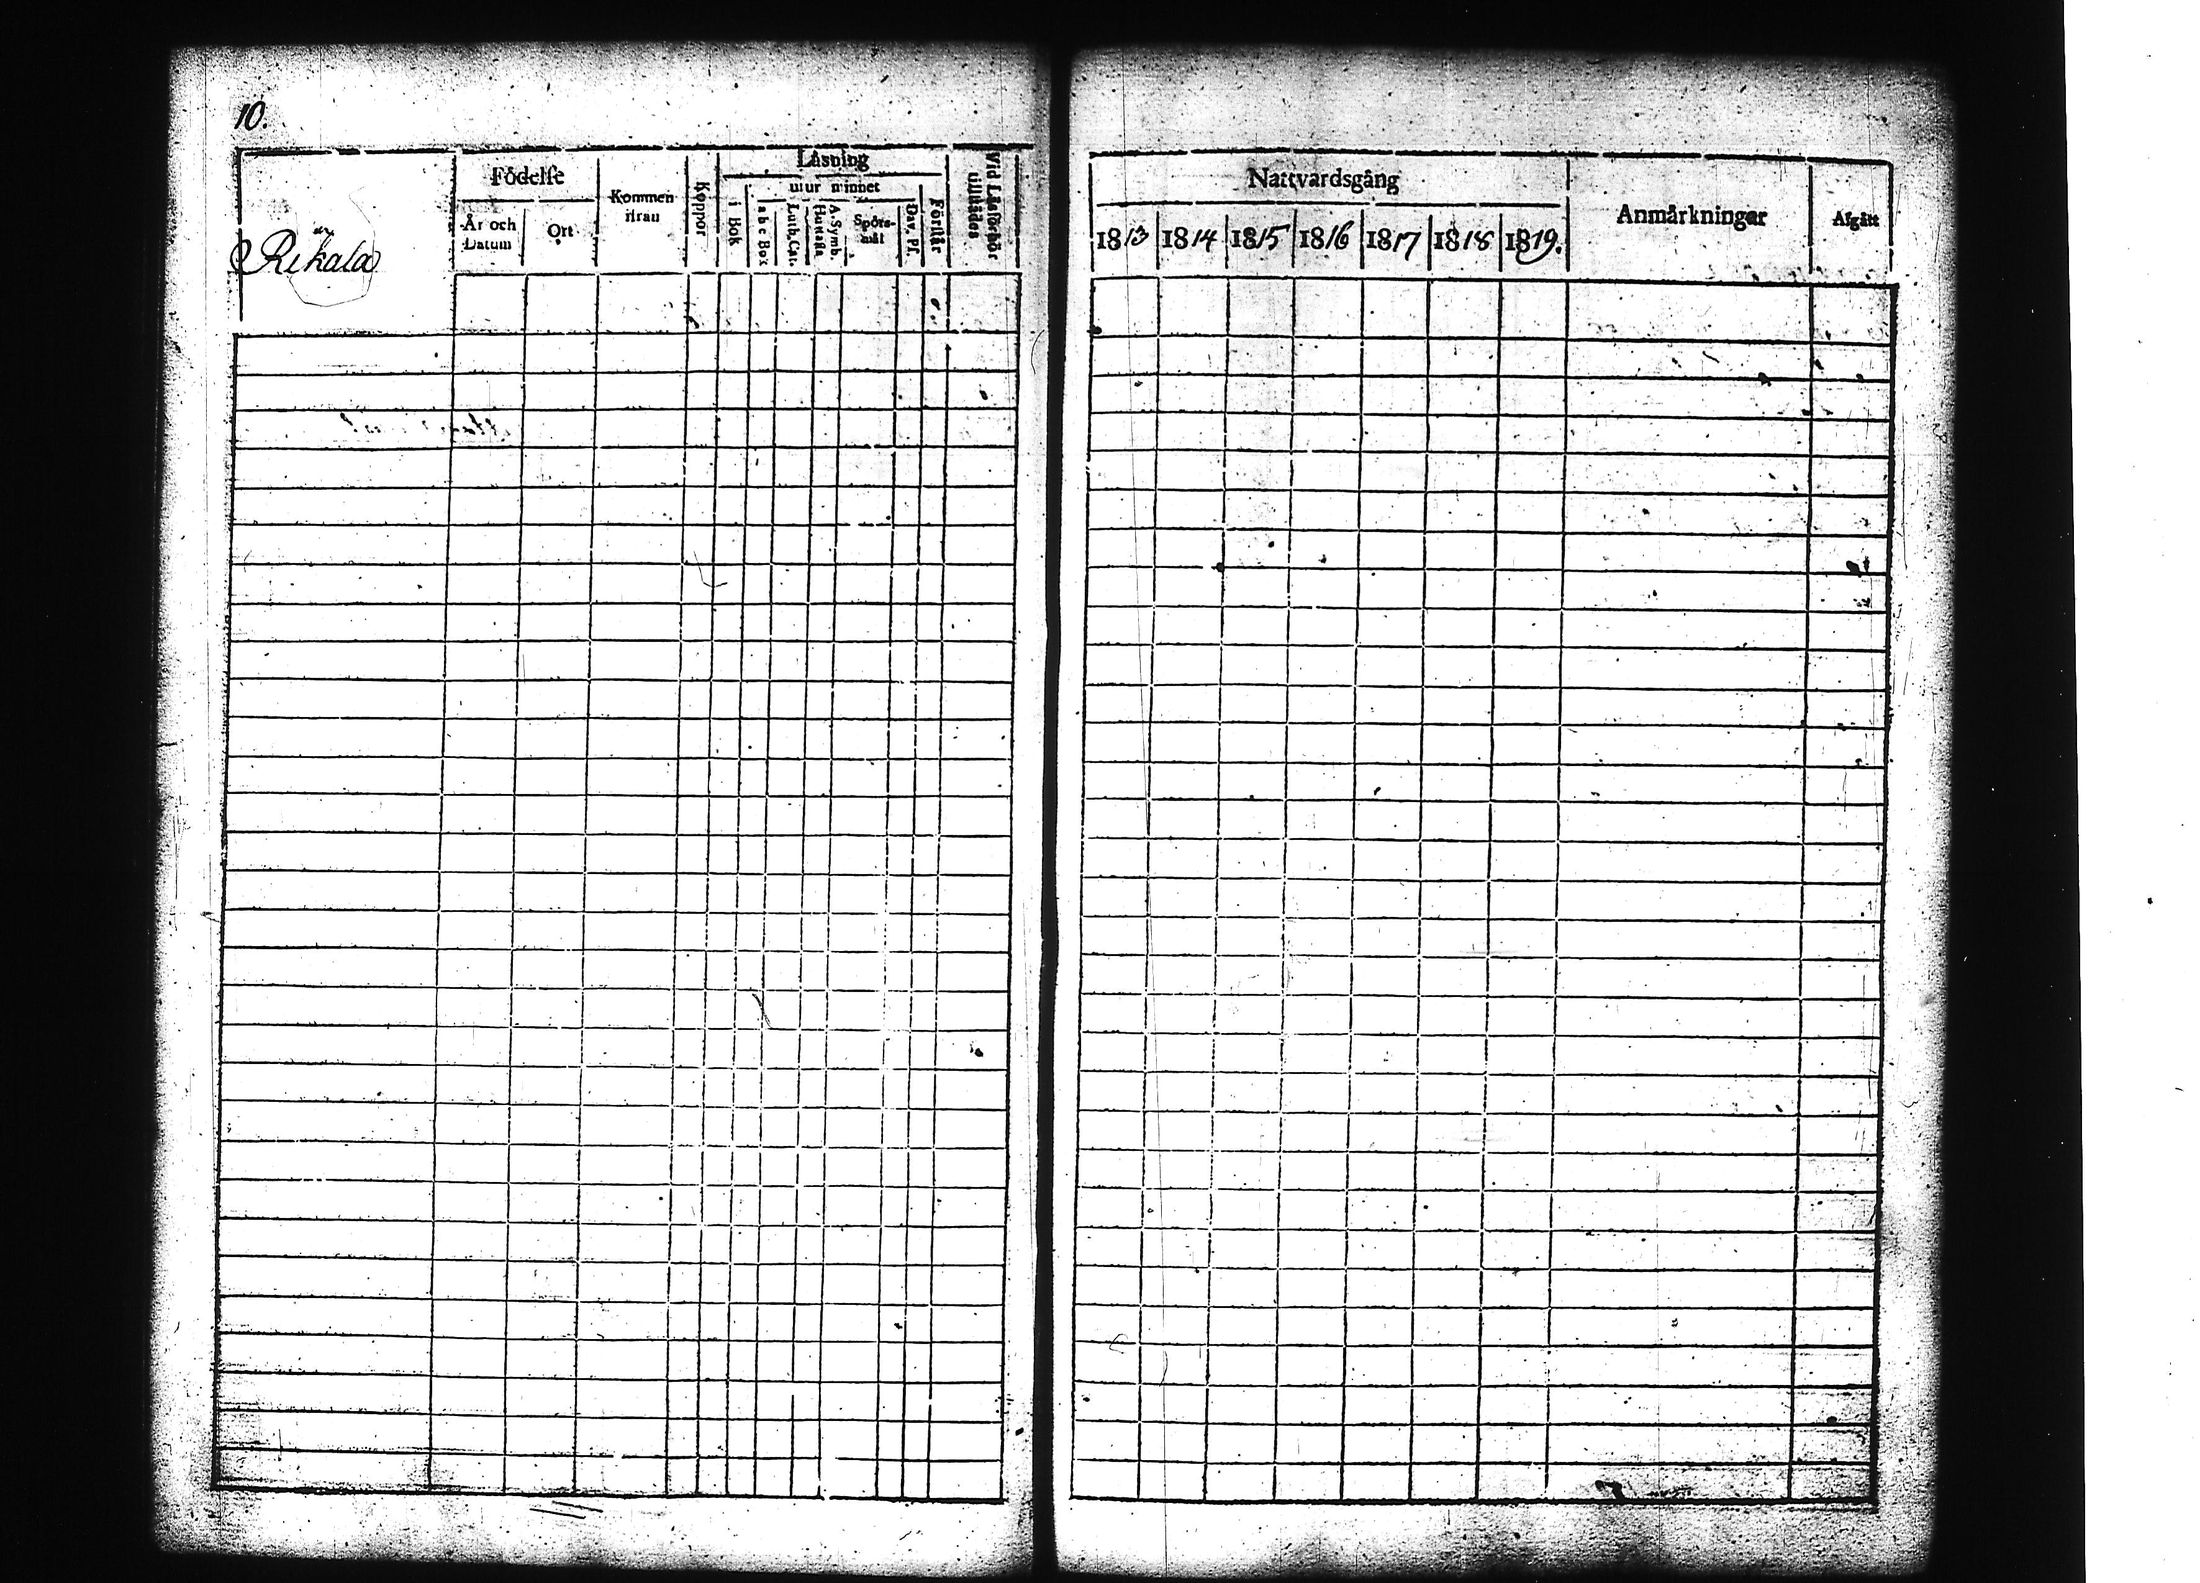 10.
Rikala
Födelse
År och Datum
Ort
Kommen ifrån
Koppor
Läsning
i Bok
utur minnet
a b c Bok
Luth. Cat.
Hustafla
A. Symb.
Spörs-mål
Dav. Ps.
Förstår
Nattvardsgång
1813 1814 1815 1816 1817 1818 1819.
Anmärkningar
Afgått